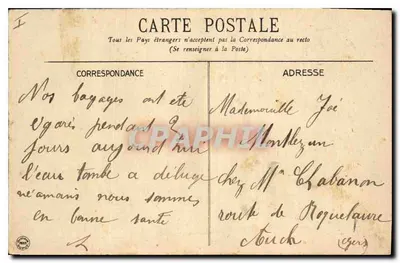 I
CARTE POSTALE
Tous les Pays étrangers n'acceptent pas la Correspondance au recto
(Se renseigner à la Poste)
CORRESPONDANCE
Nos bagages ont ete
egarés pendant 2
jours aujourd'hui
l'eau tombe a deluge
né'amains nous sommes
en bonne sante
ADRESSE
Mademoiselle
Montlezun
chez Mme Chabanon
route de Roquelaure
Auch
(Gers)
CPAPHIL